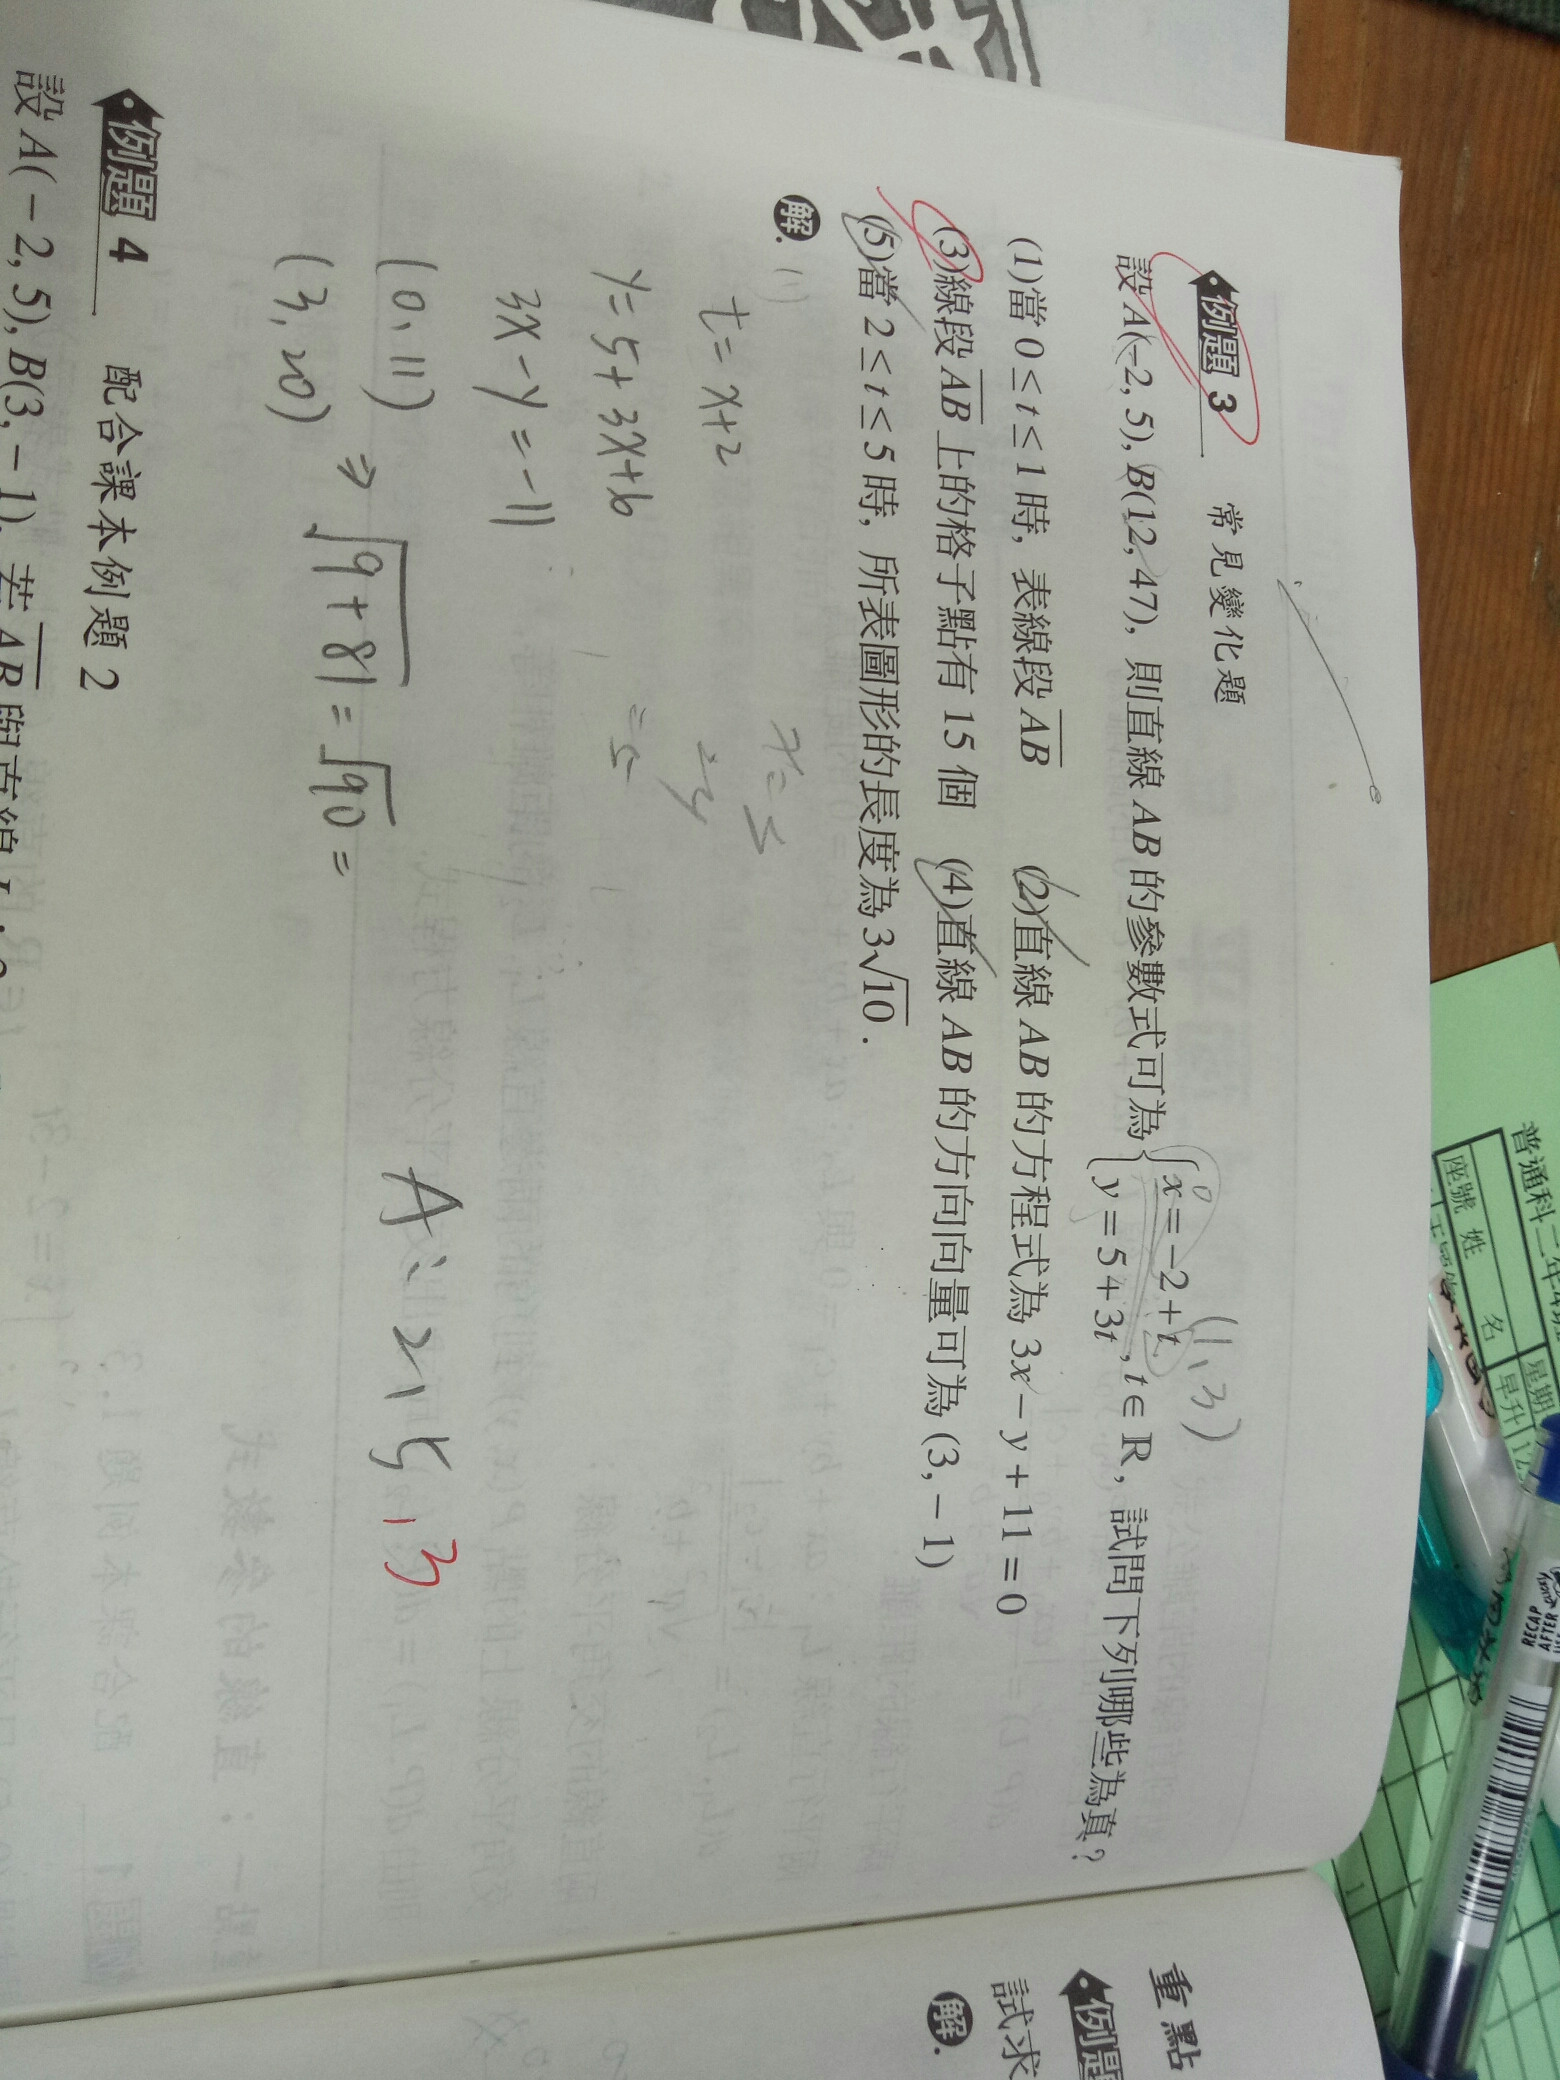 例題 3 常見變化題
(1,3)
設 A(−2, 5), B(12, 47), 則直線 AB 的參數式可為 { x = −2 + t, y = 5 + 3t , t ∈ ℝ, 試問下列哪些為真?
(1)當 0 ≤ t ≤ 1 時, 表線段 AB (2)直線 AB 的方程式為 3x − y + 11 = 0
(3)線段 AB 上的格子點有 15 個 (4)直線 AB 的方向向量可為 (3, −1)
(5)當 2 ≤ t ≤ 5 時, 所表圖形的長度為 3√10 .
解. (1)
t = x+2
y = 5 + 3x + 6
3x − y = −11
(0, 11)
(3, 20) ⇒ √9+81 = √90 =
A: 2, 5, 3
例題 4 配合課本例題 2
設 A(−2, 5), B(3, −1), 若 AB 與直線
重點
例題
試求
解.
普通科二年
座號 姓 名 星期
早升
RECAP
AFTER